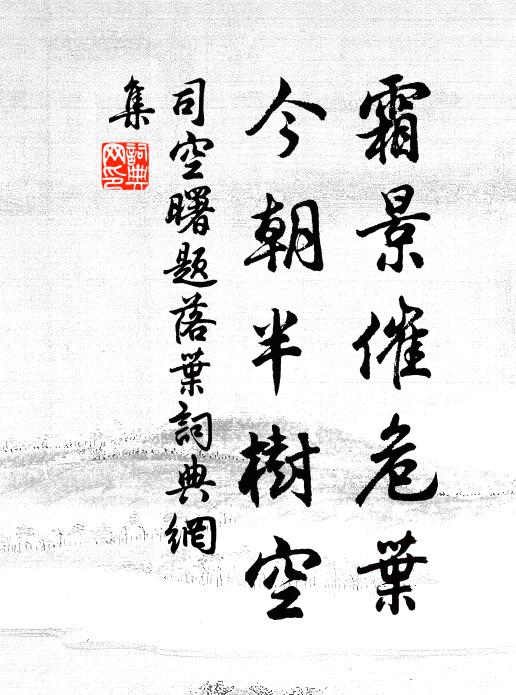 霜景催危葉
今朝半樹空
司空曙題落葉詞典網
集
詞典网印